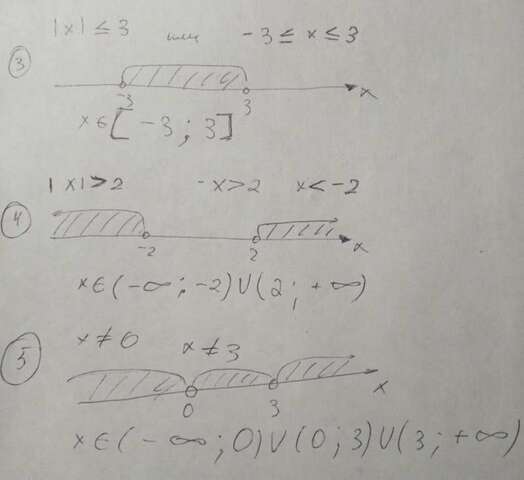 ③ |x| ≤ 3 или -3 ≤ x ≤ 3
-3 3 x
x ∈ [-3; 3]
④ |x| > 2 -x > 2 x < -2
-2 2 x
x ∈ (-∞; -2) ∪ (2; +∞)
⑤ x ≠ 0 x ≠ 3
0 3 x
x ∈ (-∞; 0) ∪ (0; 3) ∪ (3; +∞)